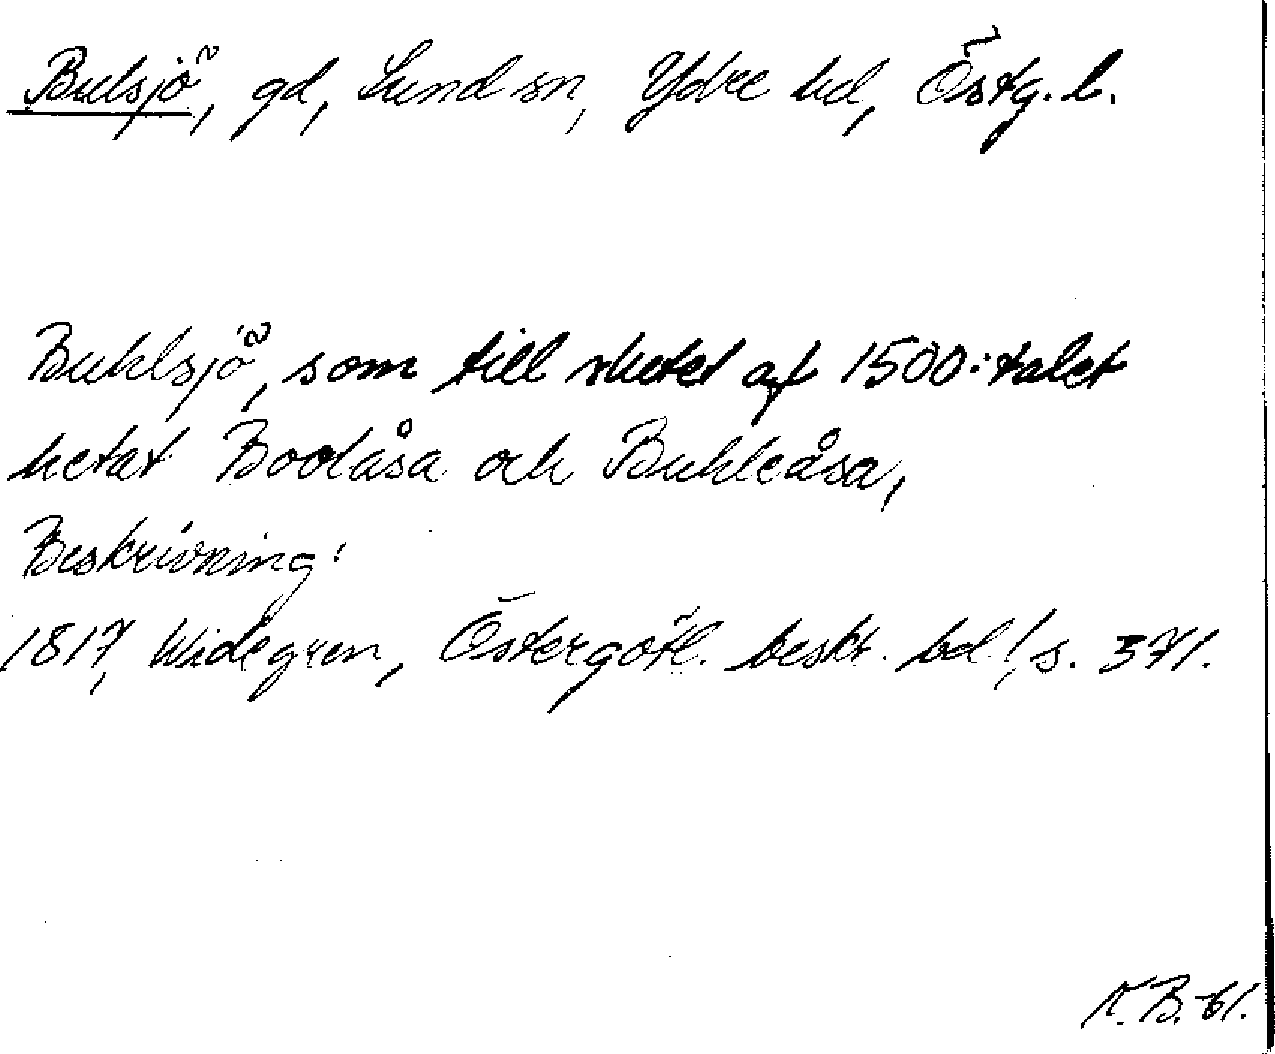 Bulsjö, gd, Sund sn, Ydre hd, Östg. l.
Buhlsjö, som till slutet af 1500-talet
hetat Boolåsa och Buhleåsa,
Beskrivning:
1817, Widegren, Östergötl. beskr. bd 1, s. 371.
K.B. 61.